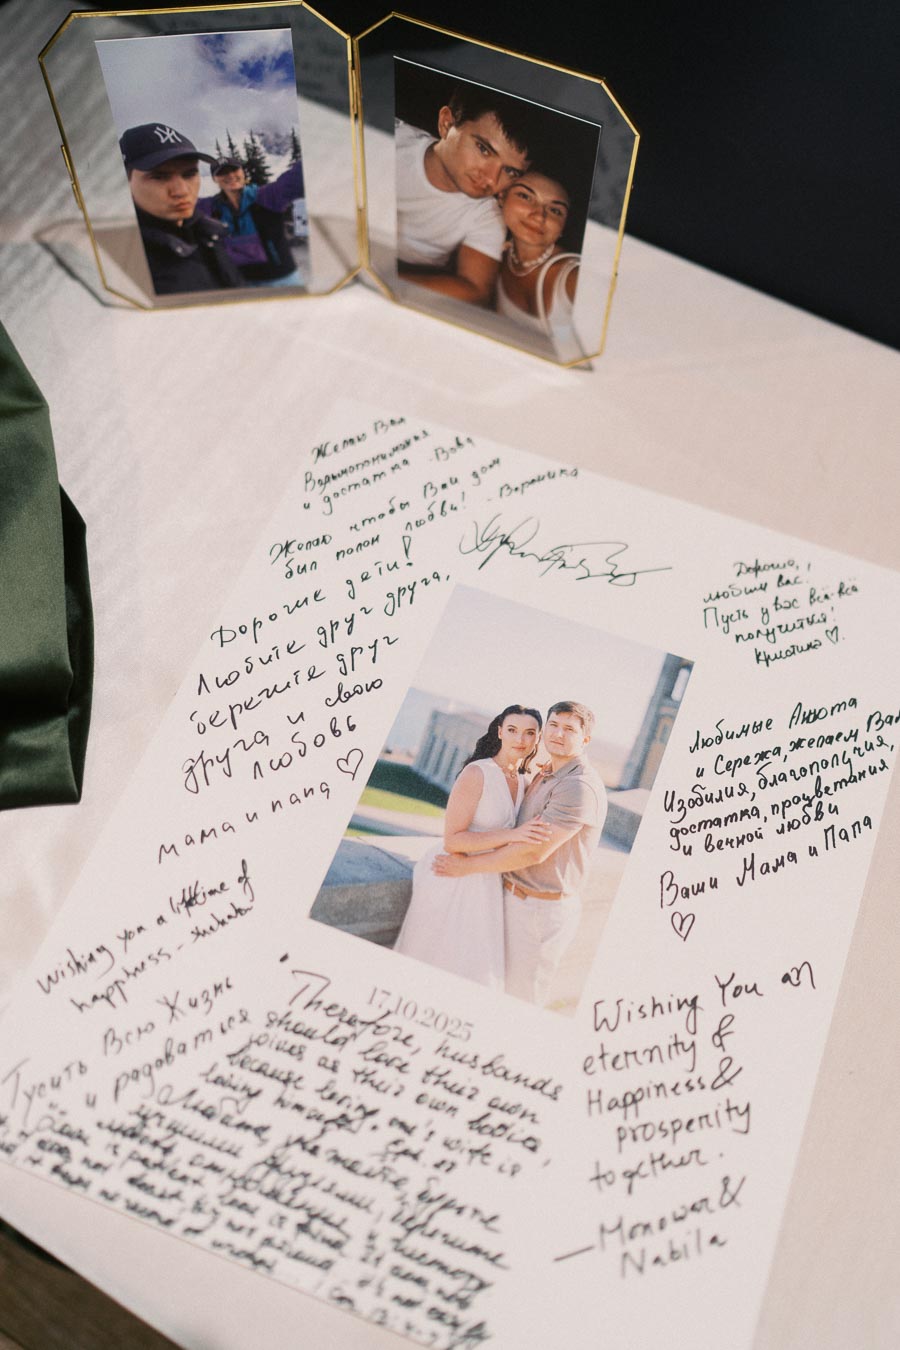 NY
Желаю Вам
Взаимопонимания
и достатка - Вова
Желаю чтобы Ваш дом
был полон любви! - Вероника
Дорогие дети!
Любите друг друга,
берегите друг
друга и свою
любовь
мама и папа ♡
Wishing you a lifetime of
happiness -
Тусить Всю Жизнь
и радоваться
Дорогие,
любим вас.
Пусть у вас всё-всё
получиться!
Кристина ♡.
Любимые Анюта
и Сережа, желаем Вам
Изобилия, благополучия,
достатка, процветания
и вечной любви
Ваши Мама и Папа
♡
17.10.2025
Therefore, husbands
should love their own
wives as their own bodies,
because loving one's wife is
loving himself. Eph.
Любите, уважайте, будьте
лучшими друзьями, берегите
Love is patient love is kind. It
Wishing You an
eternity of
Happiness &
prosperity
together.
— Monowar &
Nabila